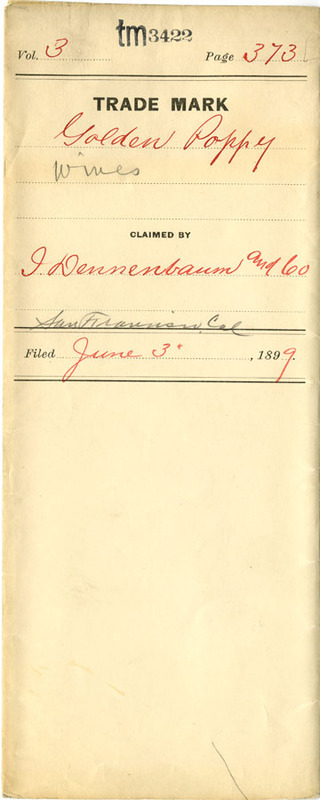 tm3422
Vol. 3 Page 373
TRADE MARK
Golden Poppy
Wines
CLAIMED BY
I. Dennenbaum and Co
San Francisco, Cal
Filed June 3, 1899.